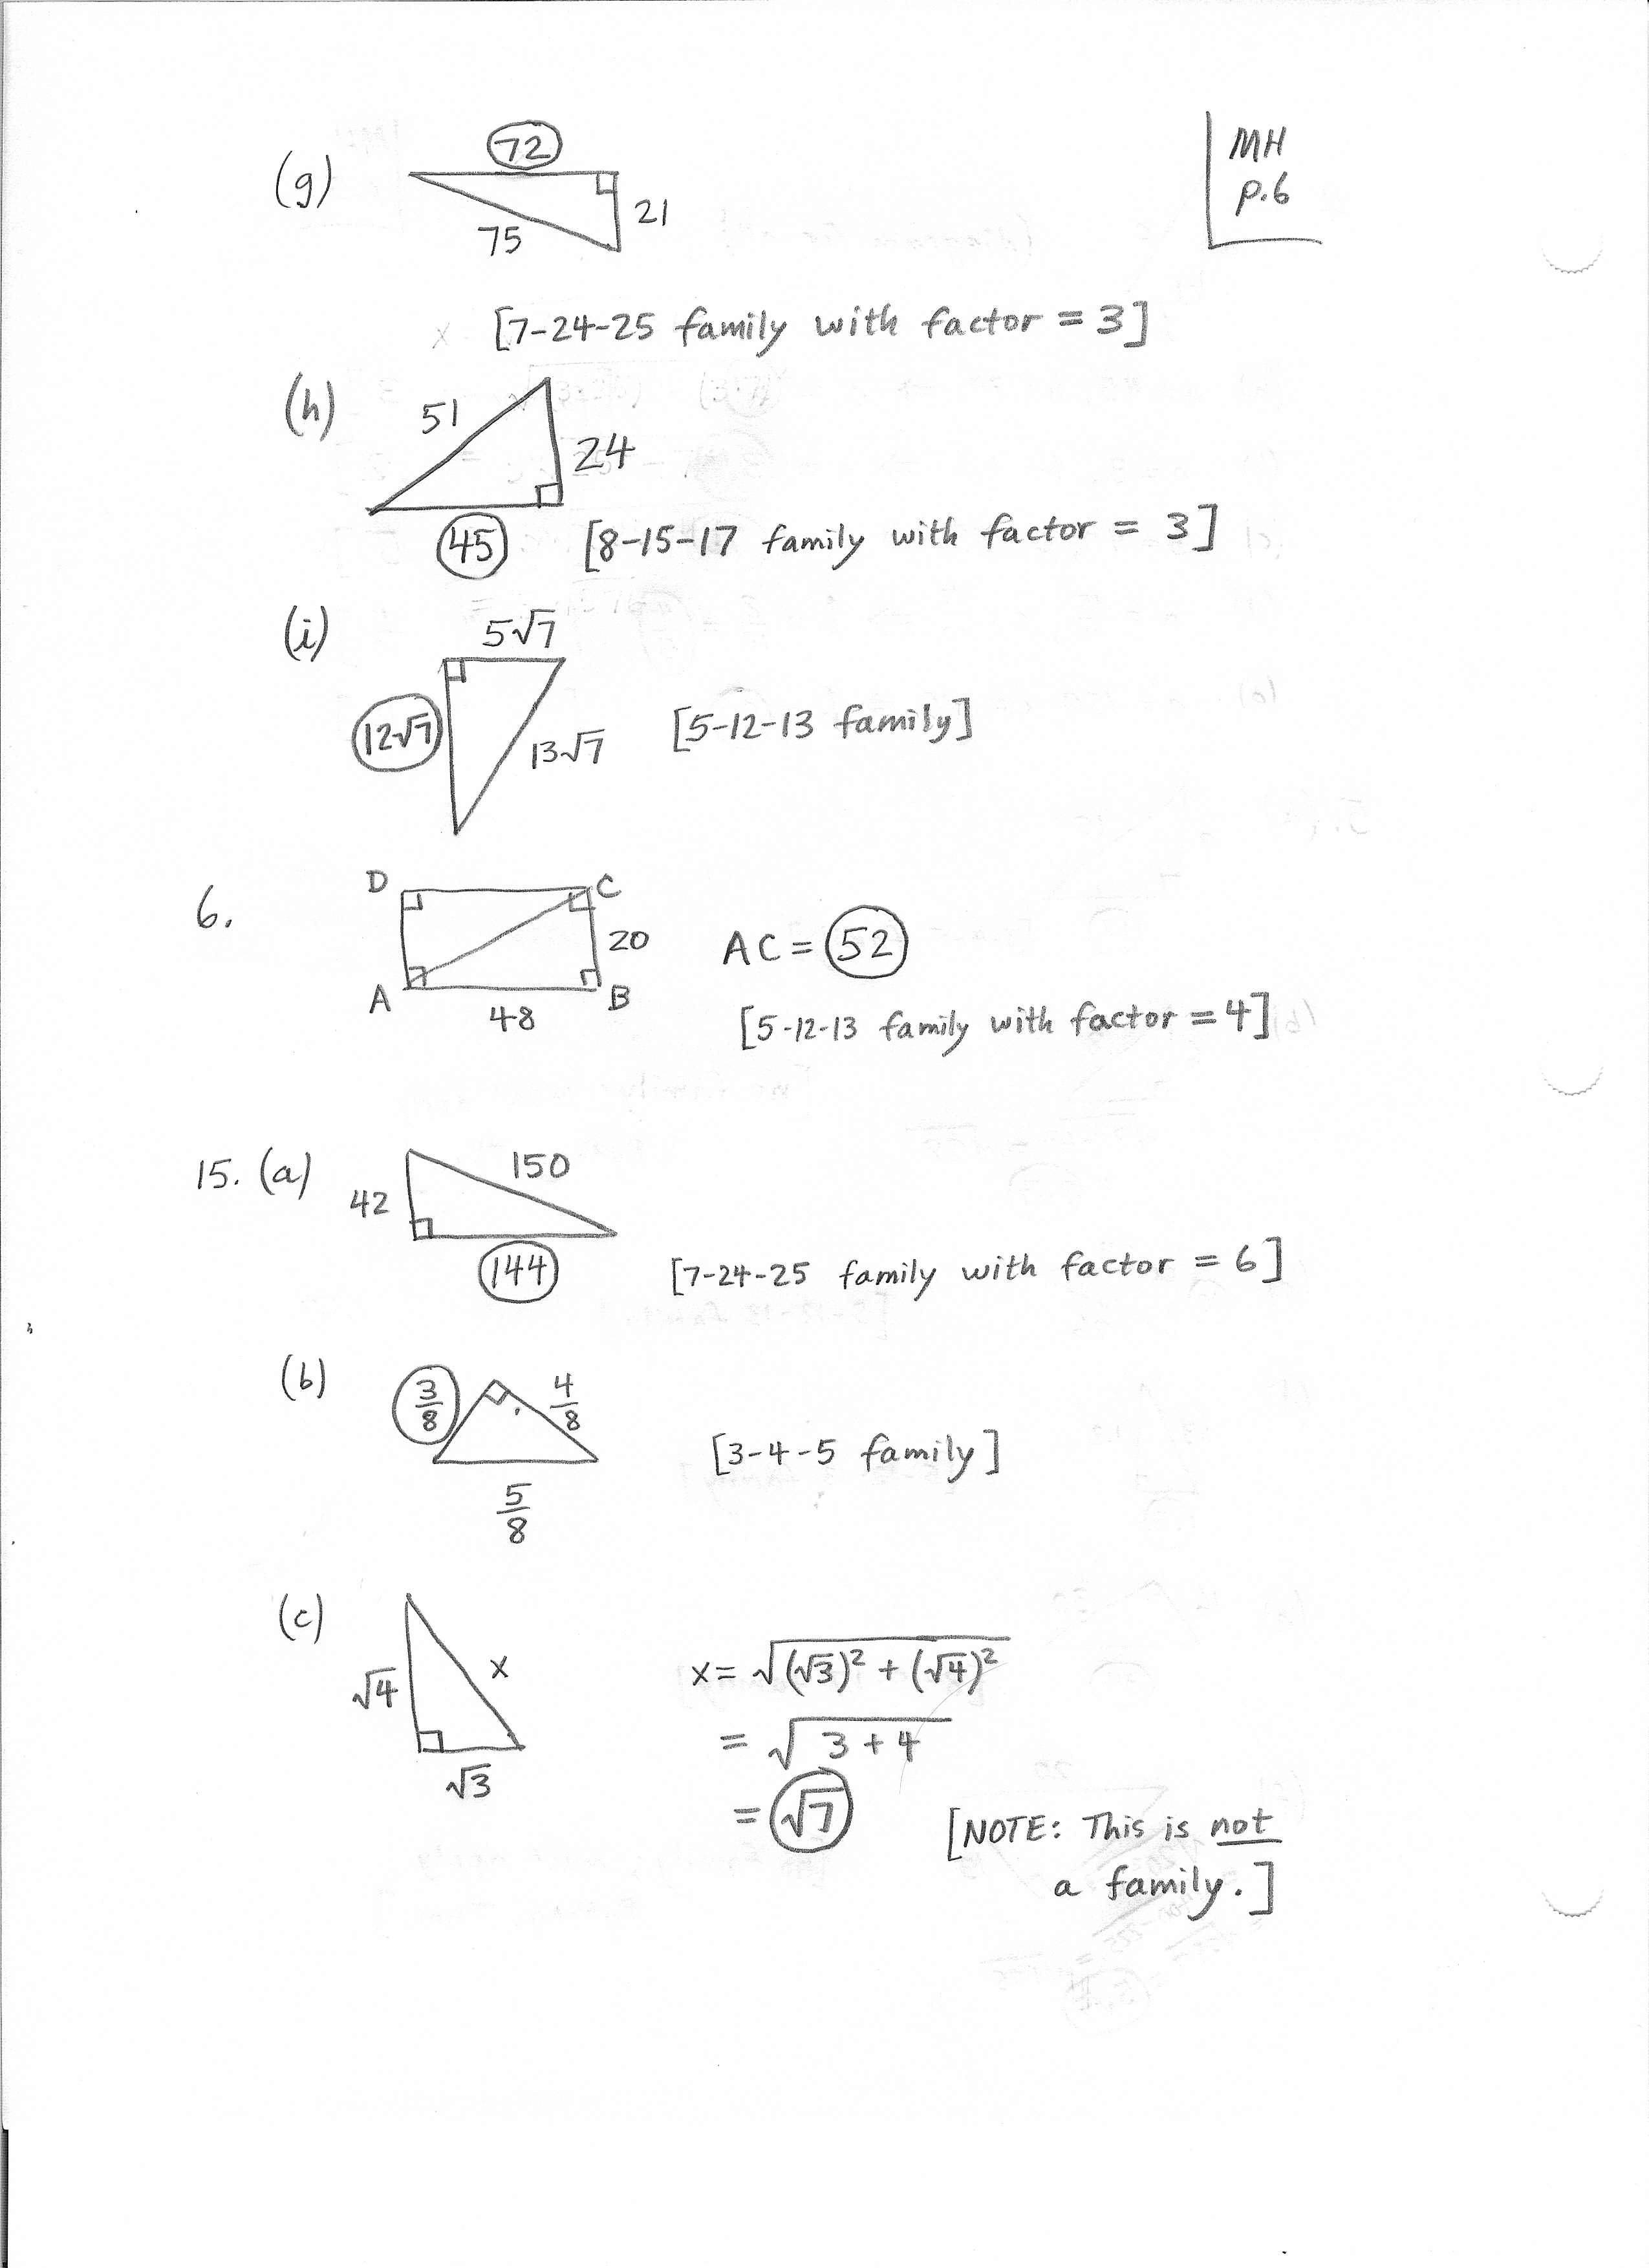 MH
p.6
(g)
72
21
75
[7-24-25 family with factor = 3]
(h)
51
24
45
[8-15-17 family with factor = 3]
(i)
5√7
12√7
13√7
[5-12-13 family]
6.
D
C
20
A
B
48
AC = 52
[5-12-13 family with factor = 4]
15. (a)
150
42
144
[7-24-25 family with factor = 6]
(b)
3/8
4/8
5/8
[3-4-5 family]
(c)
√4
x
√3
x = √((√3)² + (√4)²)
= √(3 + 4)
= √7
[NOTE: This is not
a family.]